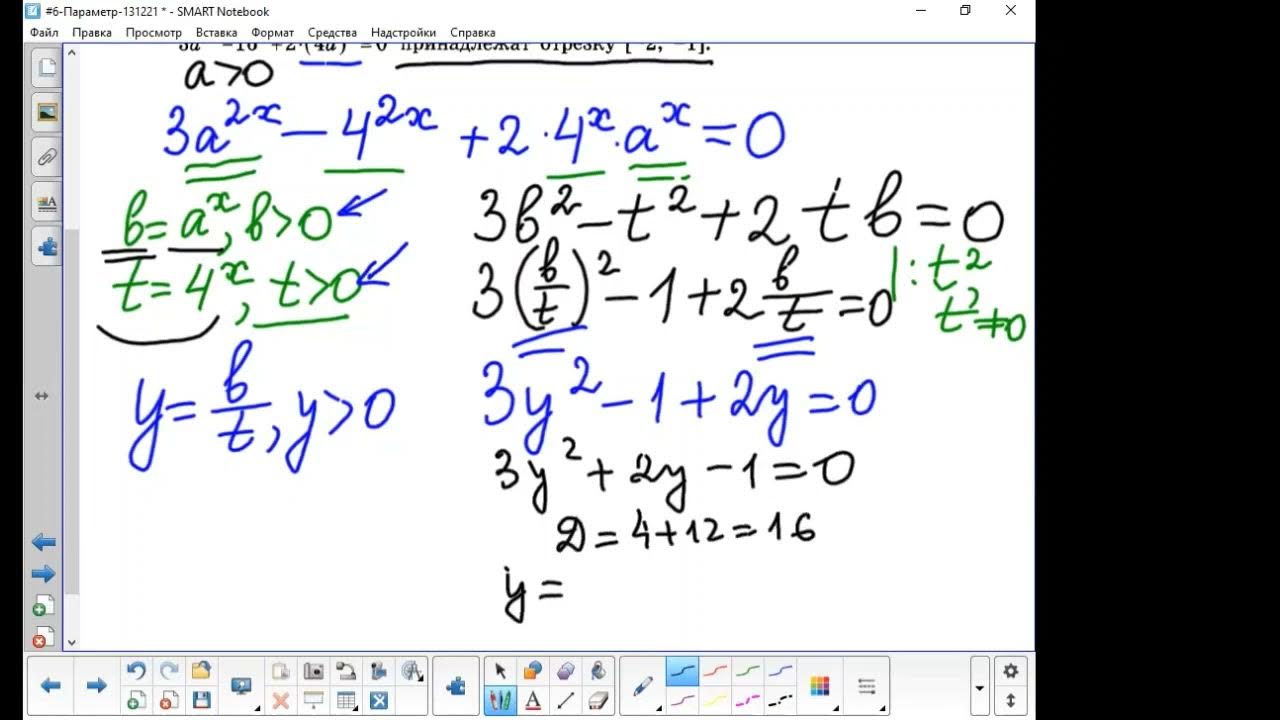 #6-Параметр-131221 * - SMART Notebook
Файл Правка Просмотр Вставка Формат Средства Надстройки Справка
принадлежат отрезку
a>0
3a^{2x} − 4^{2x} + 2·4^x·a^x = 0
в = a^x, в>0
3в² − t² + 2tв = 0
t = 4^x, t>0
3(в/t)² − 1 + 2 в/t = 0 |: t²
t² ≠ 0
y = в/t, y>0
3y² − 1 + 2y = 0
3y² + 2y − 1 = 0
D = 4+12 = 16
y =